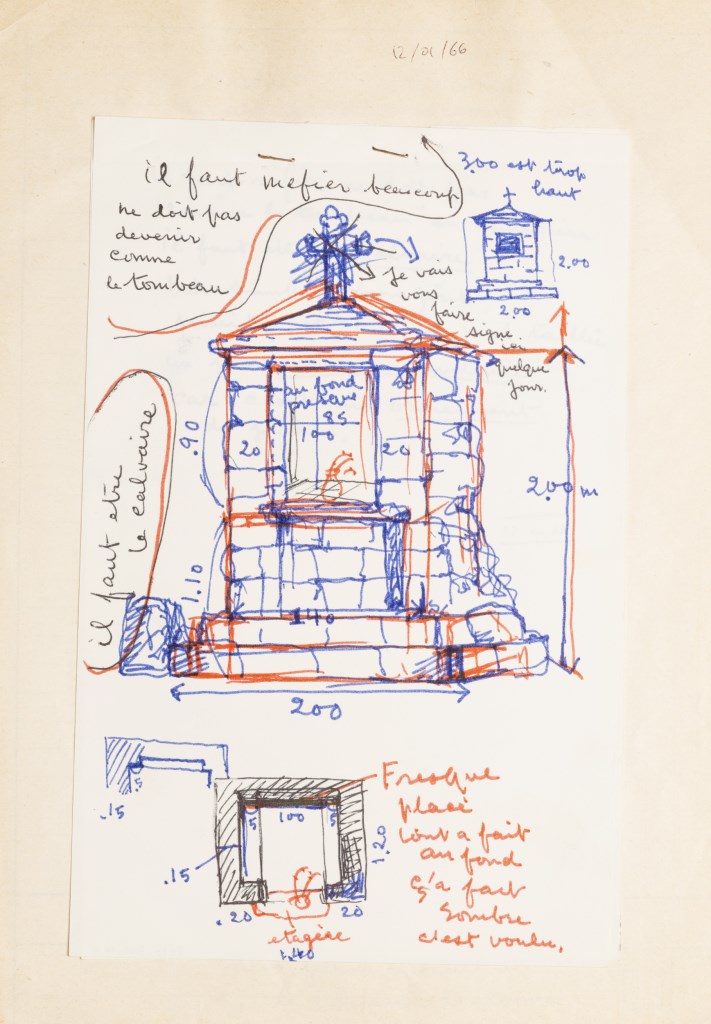 12/01/66
il faut mefier beaucoup
ne doit pas
devenir
comme
le tombeau
3.00 est trop
haut
2.00
2.00
Je vais
vous
faire
signe
ici
quelque
jour.
au fond
presque
85
100
20
20
.90
1.10
140
200
2.00 m
il faut etre
le calvaire
.15
5
Fresque
placé
tout a fait
au fond
ç'a fait
sombre
c'est voulu.
5
100
5
.15
1.20
.20
20
etagère
1.40